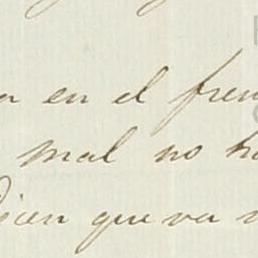 en el fren
mal no ha
Dicen que va